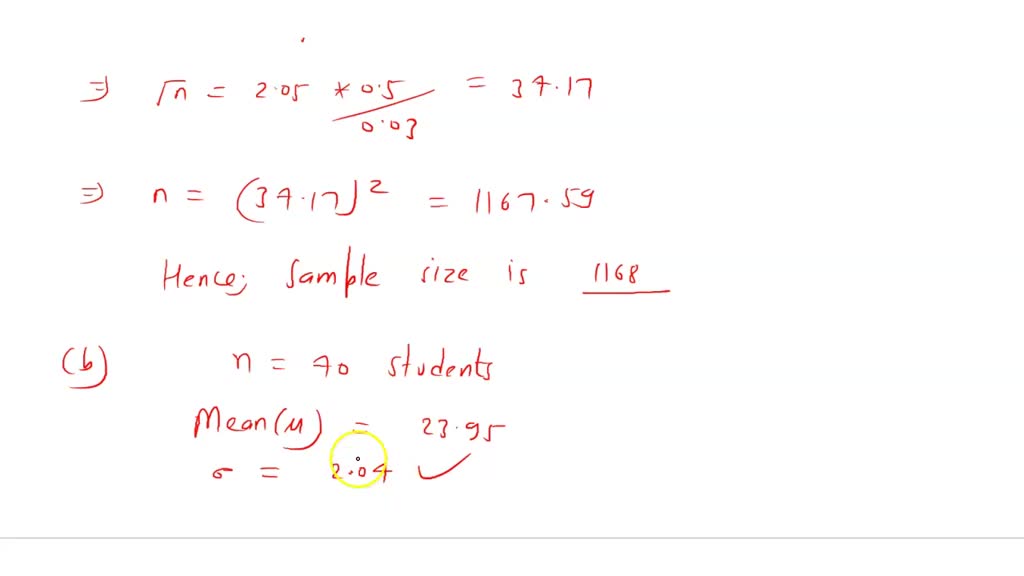 ⇒ √n = 2.05 * 0.5 / 0.03 = 34.17
⇒ n = (34.17)² = 1167.59
Hence; Sample size is 1168
(b) n = 40 students
Mean(μ) = 23.95
σ = 2.04 ✓